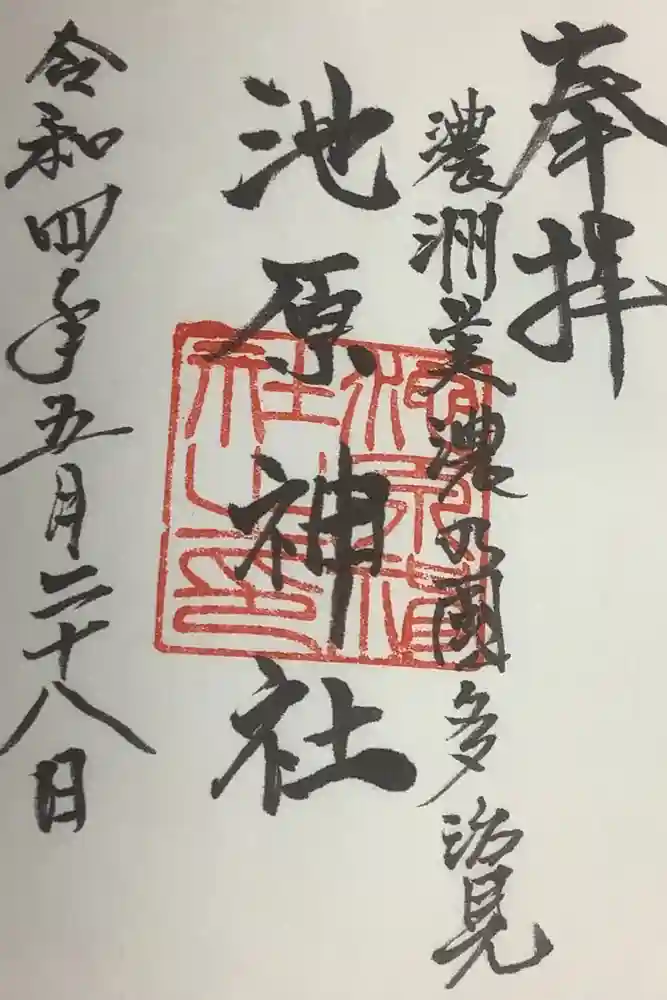 奉拝
濃洲美濃乃國多治見
池原神社
池原神社之印
令和四年五月二十八日